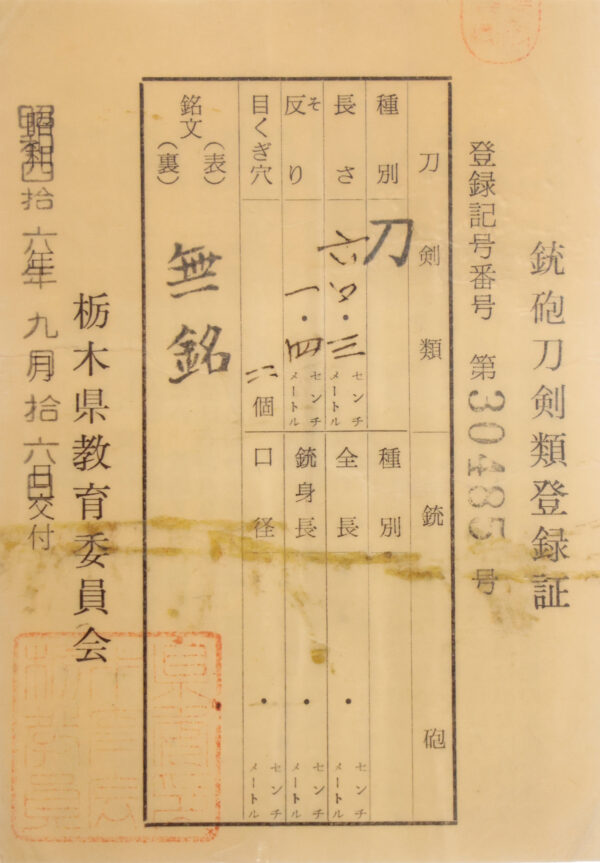 銃砲刀剣類登録証
登録記号番号 第30485号
刀剣類
種別 刀
長さ 六四・三 センチメートル
反り そ 一・四 センチメートル
目くぎ穴 二個
銘文 (表)
(裏)
無銘
銃砲
種別
全長 ・ センチメートル
銃身長 ・ センチメートル
口径 ・ センチメートル
栃木県教育委員会
昭和四拾六年九月拾六日交付